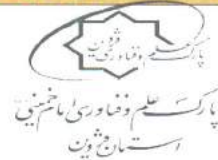 پارک علم و فناوری قزوین
پارک علم و فناوری امام خمینی
استان قزوین